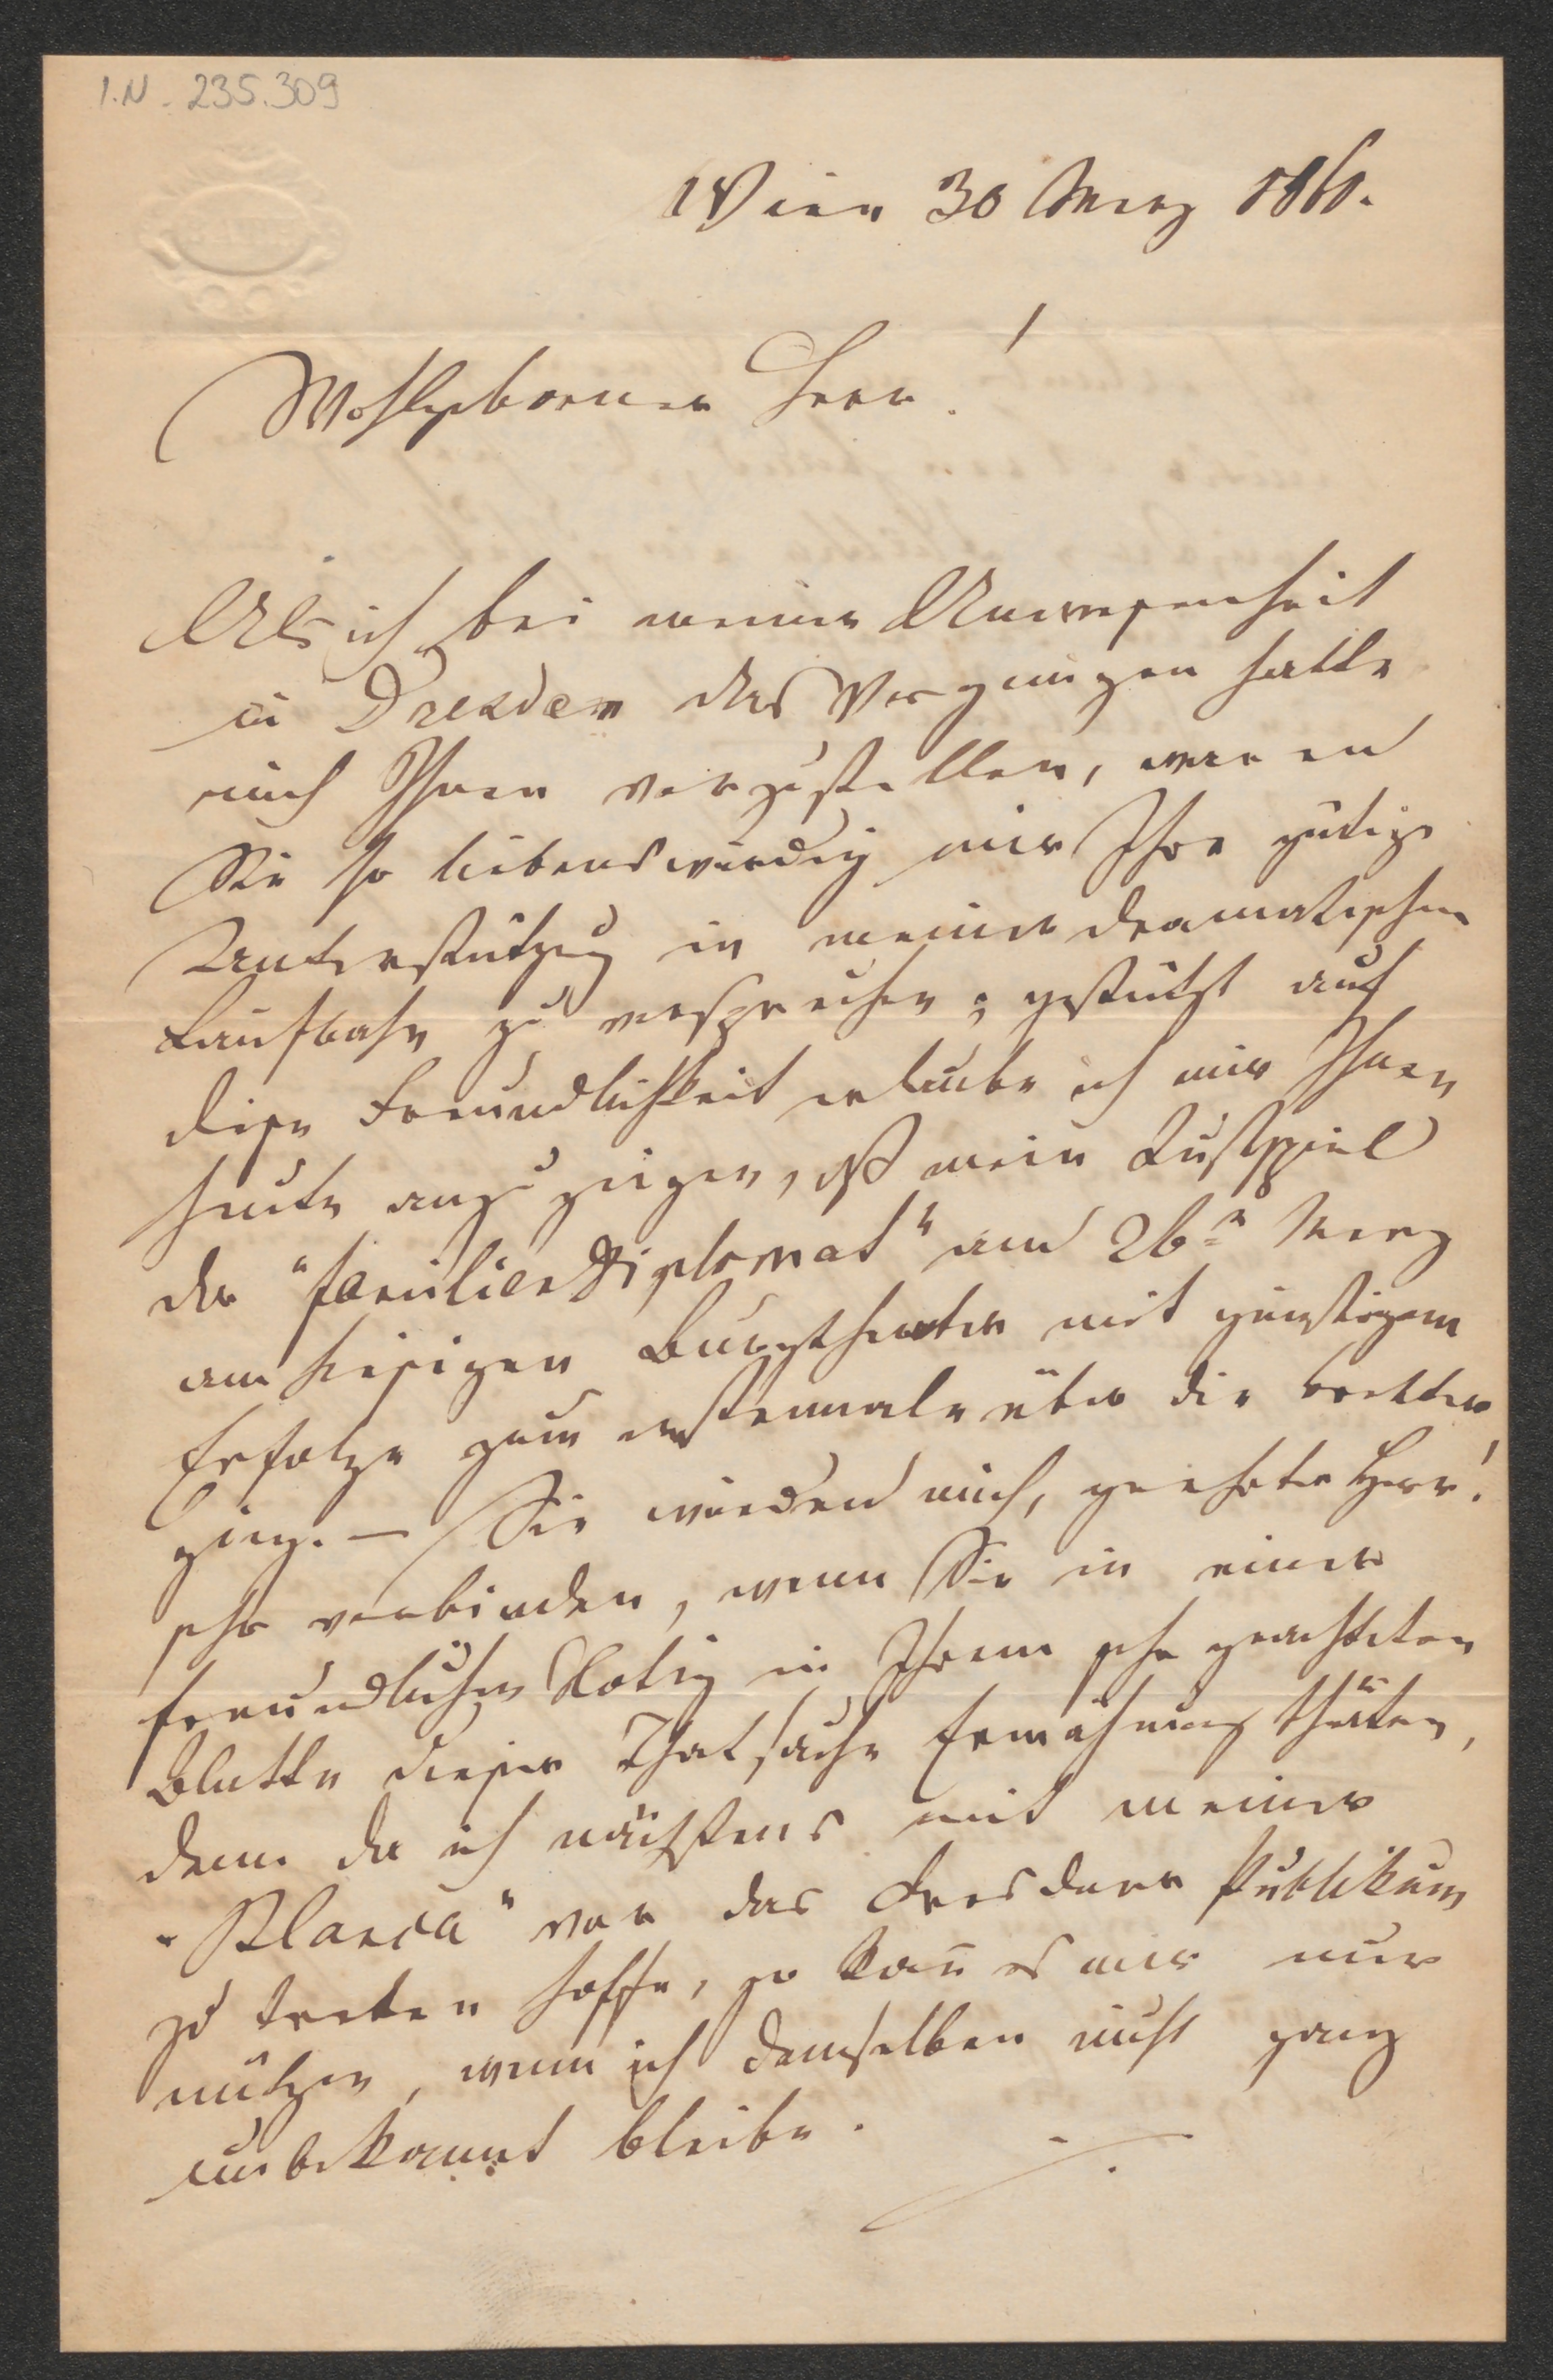 I.N. 235.309
Wien 30 Merz 1861.
Wohlgeborner Herr!
Als ich bei meiner Anwesenheit
in Dresden das Vergnügen hatte
mich Ihnen vorzustellen, waren
Sie so liebenswürdig mir Ihre gütige
Unterstützung in meiner dramatischen
Laufbahn zu versprechen; gestützt auf
diese Freundlichkeit erlaube ich mir Ihnen
heute anzuzeigen, daß mein Lustspiel
der "Familien Diplomat" am 26ⁿ Merz
am hiesigen Burgtheater mit günstigem
Erfolge zum erstenmale über die Bretter
ging. — Sie würden mich, geehrter Herr!
sehr verbinden, wenn Sie in einer
freundlichen Notiz in Ihrem sehr geachteten
Blatte dieser Thatsache Erwähnung thäten,
denn da ich nächstens mit meiner
"Blanca" vor das Dresdner Publikum
zu treten hoffe, so kan̄ es mir nur
nützen, wenn ich demselben nicht ganz
unbekannt bleibe.